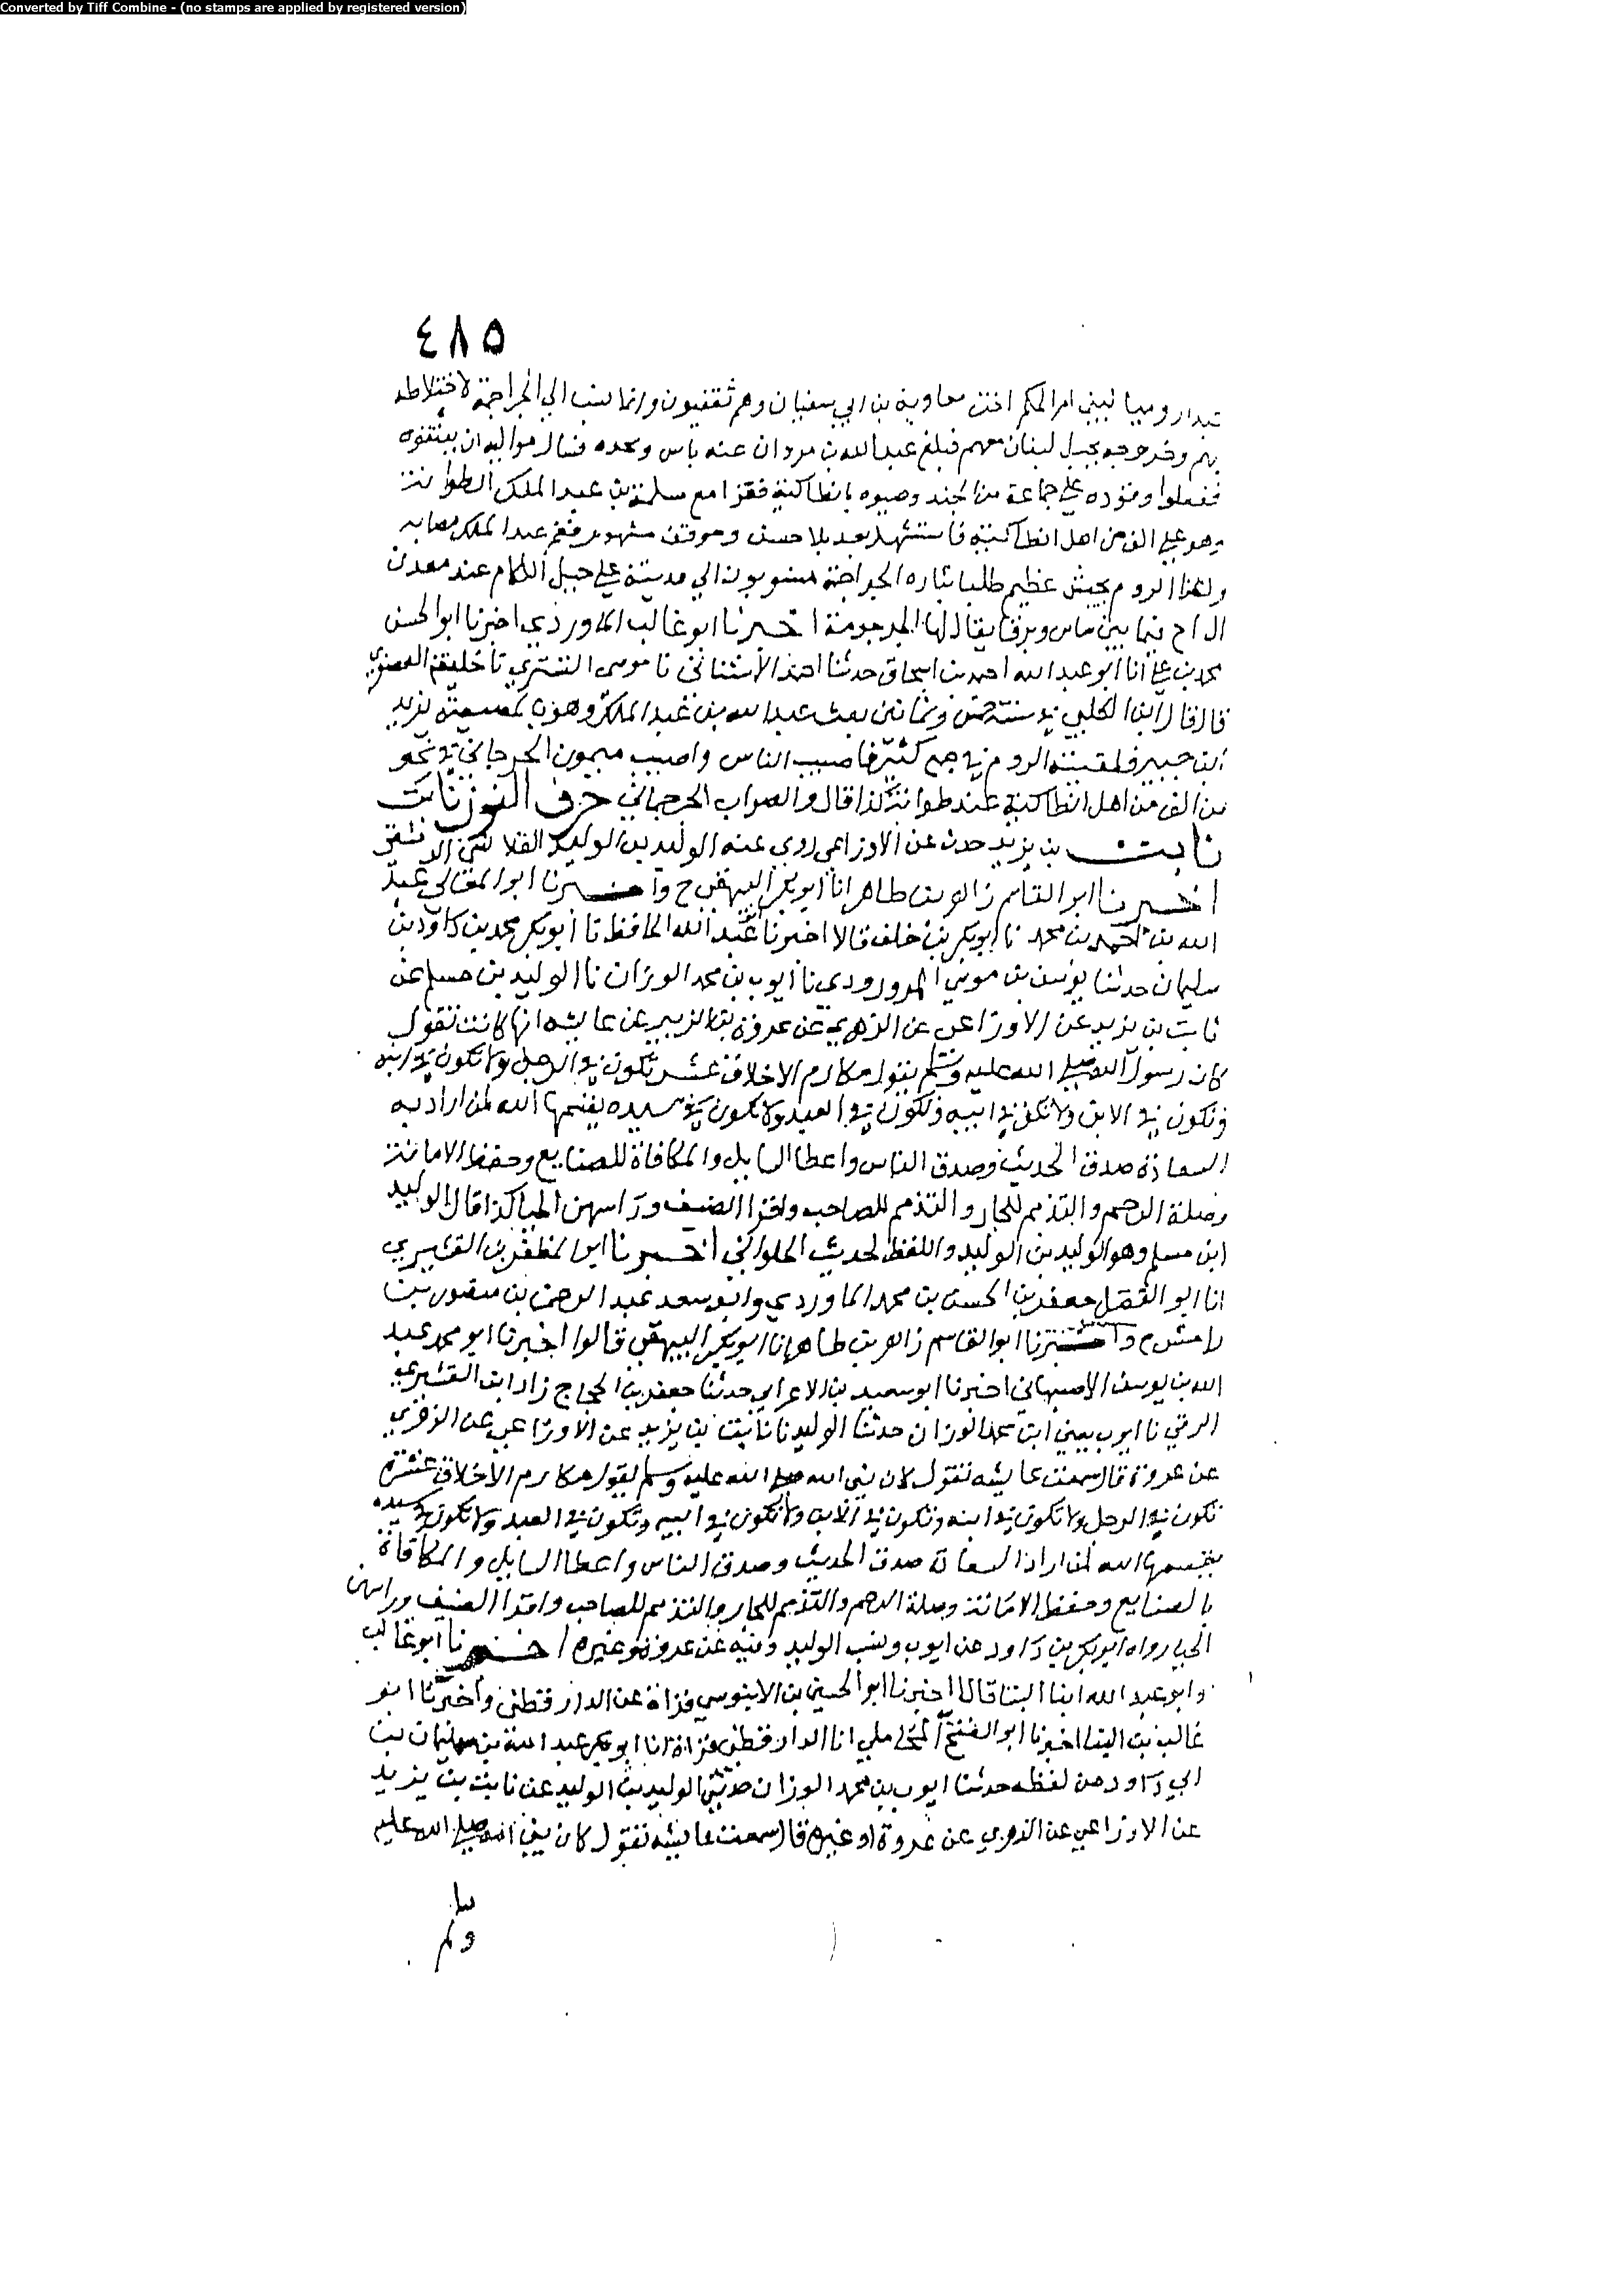 Converted by Tiff Combine - (no stamps are applied by registered version)
٤٨٥
روميا لبني ام الحكم اخت معاوية بن ابي سفيان وهم ثقفيون وانما نسب الي الجراجمة لاختلاطه
بهم وخروجه بجبل لبنان معهم فبلغ عبد الملك بن مروان عنه باس ونجده فسال مواليه ان يعتقوه
ففعلوا وقوده علي جماعة من الجند وصيره بانطاكية فغزا مع مسلمة بن عبد الملك الطوانة
وهو علي الف من اهل انطاكية فاستشهد بعد بلا حسن وموقف مشهود فغم عبد الملك مصابه
واغزا الروم بجيش عظيم طلبا بثاره الجراجمة منسوبون الي مدينة علي جبل اللكام عند معدن
الزاج فيما بين بياس وبوقا يقال لها الجرجومة اخبرنا ابو غالب الماوردي اخبرنا ابو الحسن
محمد بن علي انا ابو عبد الله احمد بن اسحاق حدثنا احمد الاشناني نا موسى التستري نا خليفة العصفري
قال قال ابن الكلبي في سنة خمس وثمانين بعث عبد الله بن عبد الملك وهو بالمصيصة يزيد
ابن جبير فلقيته الروم في جمع كثير فاصيب الناس واصيب ميمون الجرجاني في نحو
من الف من اهل انطاكية عند طوانة كذا قال والصواب الجرجماني حرف النون نابت
نابت بن يزيد حدث عن الاوزاعي روى عنه الوليد بن الوليد القلانسي الدمشقي
اخبرنا ابو القاسم زاهر بن طاهر انا ابو بكر البيهقي ح واخبرنا ابو المعالي عبد
الله بن احمد بن محمد نا ابو بكر بن خلف قالا اخبرنا ابو عبد الله الحافظ نا ابو بكر محمد بن داود بن
سليمان حدثنا يوسف بن موسي المروروذي نا ايوب بن محمد الوزان نا الوليد بن مسلم عن
ثابت بن يزيد عن الاوزاعي عن الزهري عن عروة بن الزبير عن عايشه انها كانت تقول
كان رسول الله صلي الله عليه وسلم يقول مكارم الاخلاق عشر تكون في الرجل ولا تكون في ابنه
وتكون في الابن ولا تكون في ابيه وتكون في العبد ولا تكون في سيده يقسمها الله لمن اراد به
السعادة صدق الحديث وصدق الناس واعطا السايل والمكافاة للصنايع وحفظ الامانة
وصلة الرحم والتذمم للجار والتذمم للصاحب واقرا الضيف وراسهن الحيا كذا قال الوليد
ابن مسلم وهو الوليد بن الوليد واللفظ لحديث الحلواني اخبرنا ابو المظفر بن القشيري
انا ابو الفضل جعفر بن الحسن بن محمد الماوردي وابو سعد عبد الرحمن بن منصور بن
رامش ح واخبرنا ابو القاسم زاهر بن طاهر انا ابو بكر البيهقي قالوا اخبرنا ابو محمد عبد
الله بن يوسف الاصبهاني اخبرنا ابو سعيد بن الاعرابي حدثنا جعفر بن الحجاج زاد ابن القشيري
الرقي نا ايوب يعني ابن محمد الوزان حدثنا الوليد نا نابت بن يزيد عن الاوزاعي عن الزهري
عن عروة قال سمعت عايشه تقول كان نبي الله صلى الله عليه وسلم يقول مكارم الاخلاق عشرة
تكون في الرجل ولا تكون في ابنه وتكون في الابن ولا تكون في ابيه وتكون في العبد ولا تكون في سيده
يقسمها الله لمن اراد السعادة صدق الحديث وصدق الناس واعطا السايل والمكافاة
بالصنايع وحفظ الامانة وصلة الرحم والتذمم للجار والتذمم للصاحب واقرا الضيف وراسهن
الحيا رواه ابو بكر بن داود عن ايوب ونسب الوليد وفيه عن عروة او غيره اخبرنا ابو غالب
وابو عبد الله ابنا البنا قالا اخبرنا ابو الحسين بن الابنوسي قراة عن الدارقطني واخبرنا ابو
غالب بن البنا اخبرنا ابو الفتح المحاملي انا الدارقطني قراة انا ابو بكر عبد الله بن سليمان بن
ابي داود من لفظه حدثنا ايوب بن محمد الوزان حدثني الوليد بن الوليد عن نابت بن يزيد
عن الاوزاعي عن الزهري عن عروة او غيره قال سمعت عايشه تقول كان نبي الله صلي الله عليه
وسلم